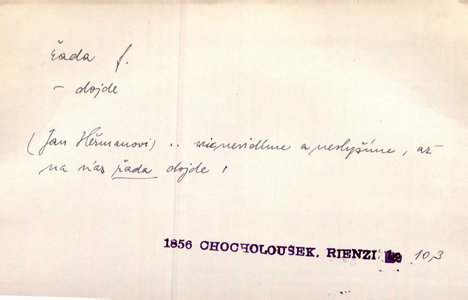 řada f.
- dojde
(Jan Heřmanovi) .. nic nevidíme a neslyšíme, až-
na nás řada dojde!
1856 CHOCHOLOUŠEK, RIENZI 10,3